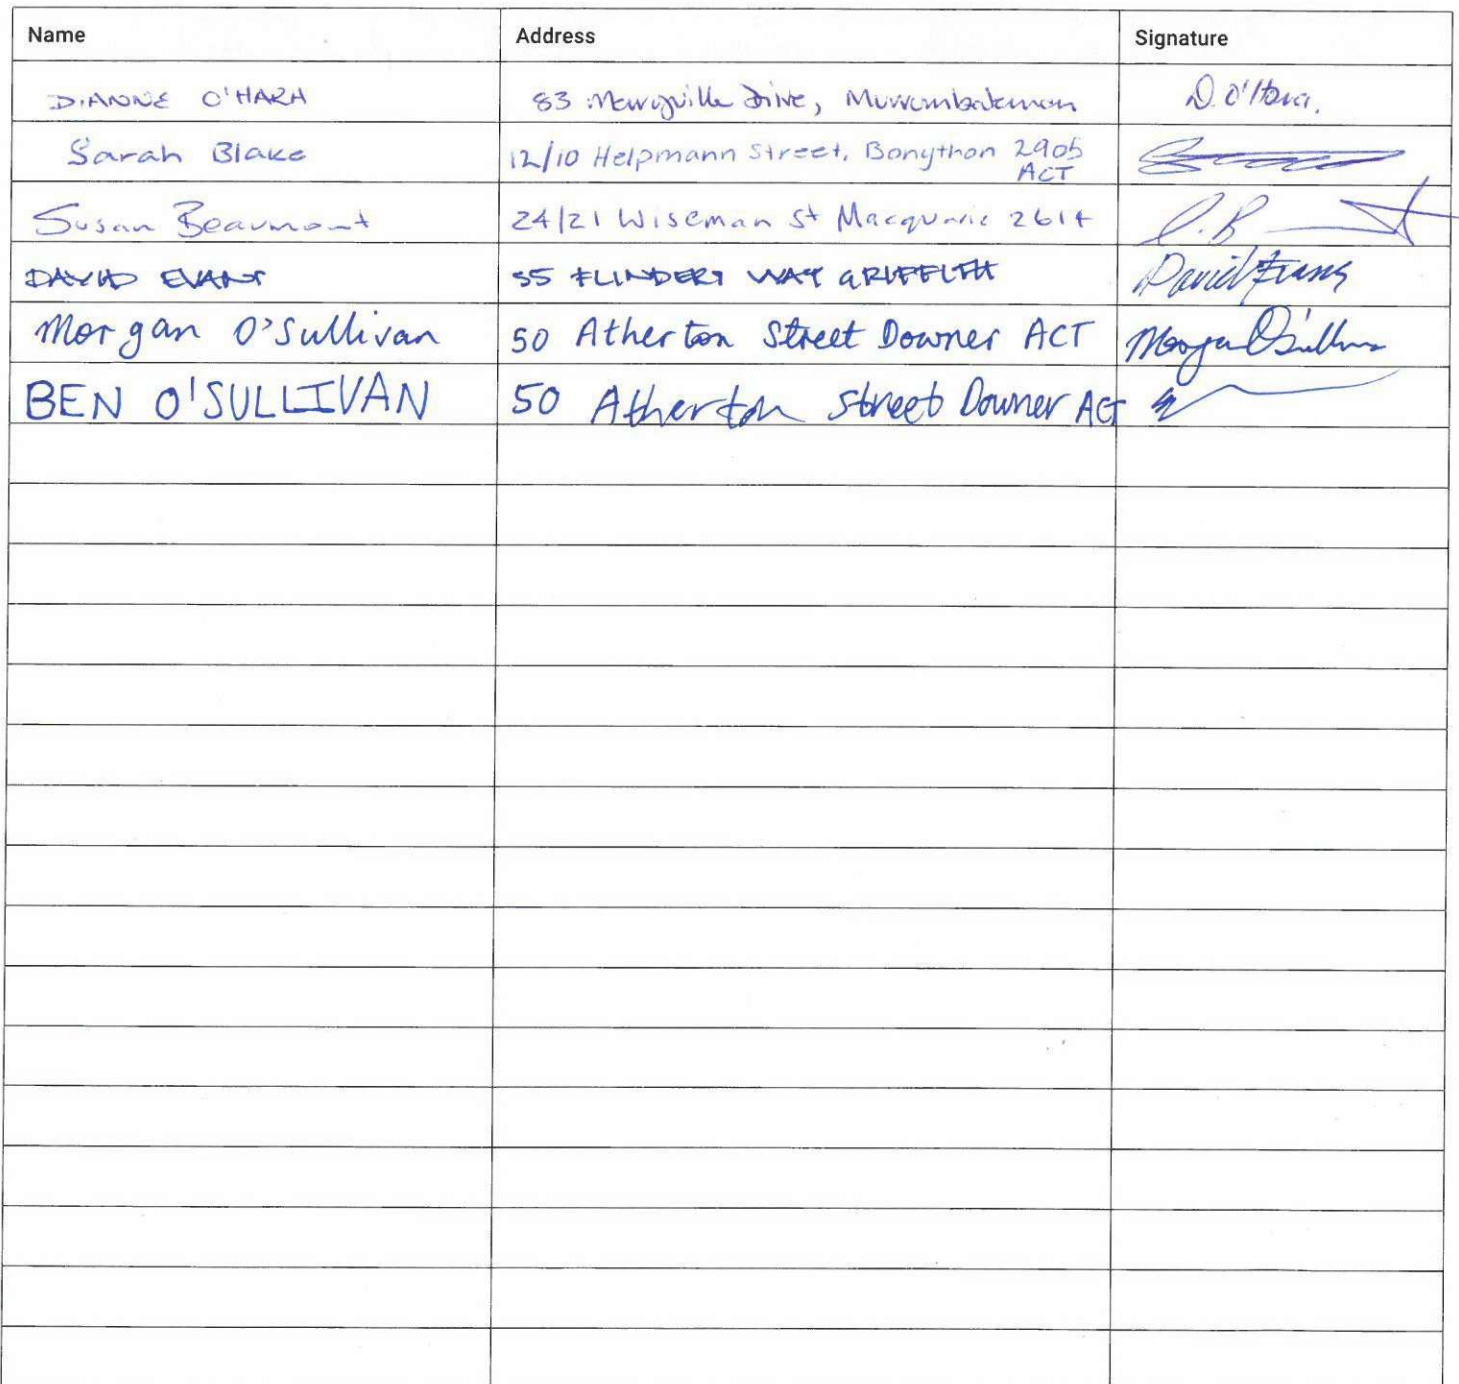 Name Address Signature
DIANNE O'HARA 83 Merryville Drive, Murrumbateman D. O'Hara.
Sarah Blake 12/10 Helpmann Street, Bonython 2905
ACT
Susan Beaumont 24/21 Wiseman St Macquarie 2614 S.B
DAVID EVANS 55 FLINDERS WAY GRIFFITH David Evans
Morgan O'Sullivan 50 Atherton Street Downer ACT Morgan O'Sullivan
BEN O'SULLIVAN 50 Atherton Street Downer ACT